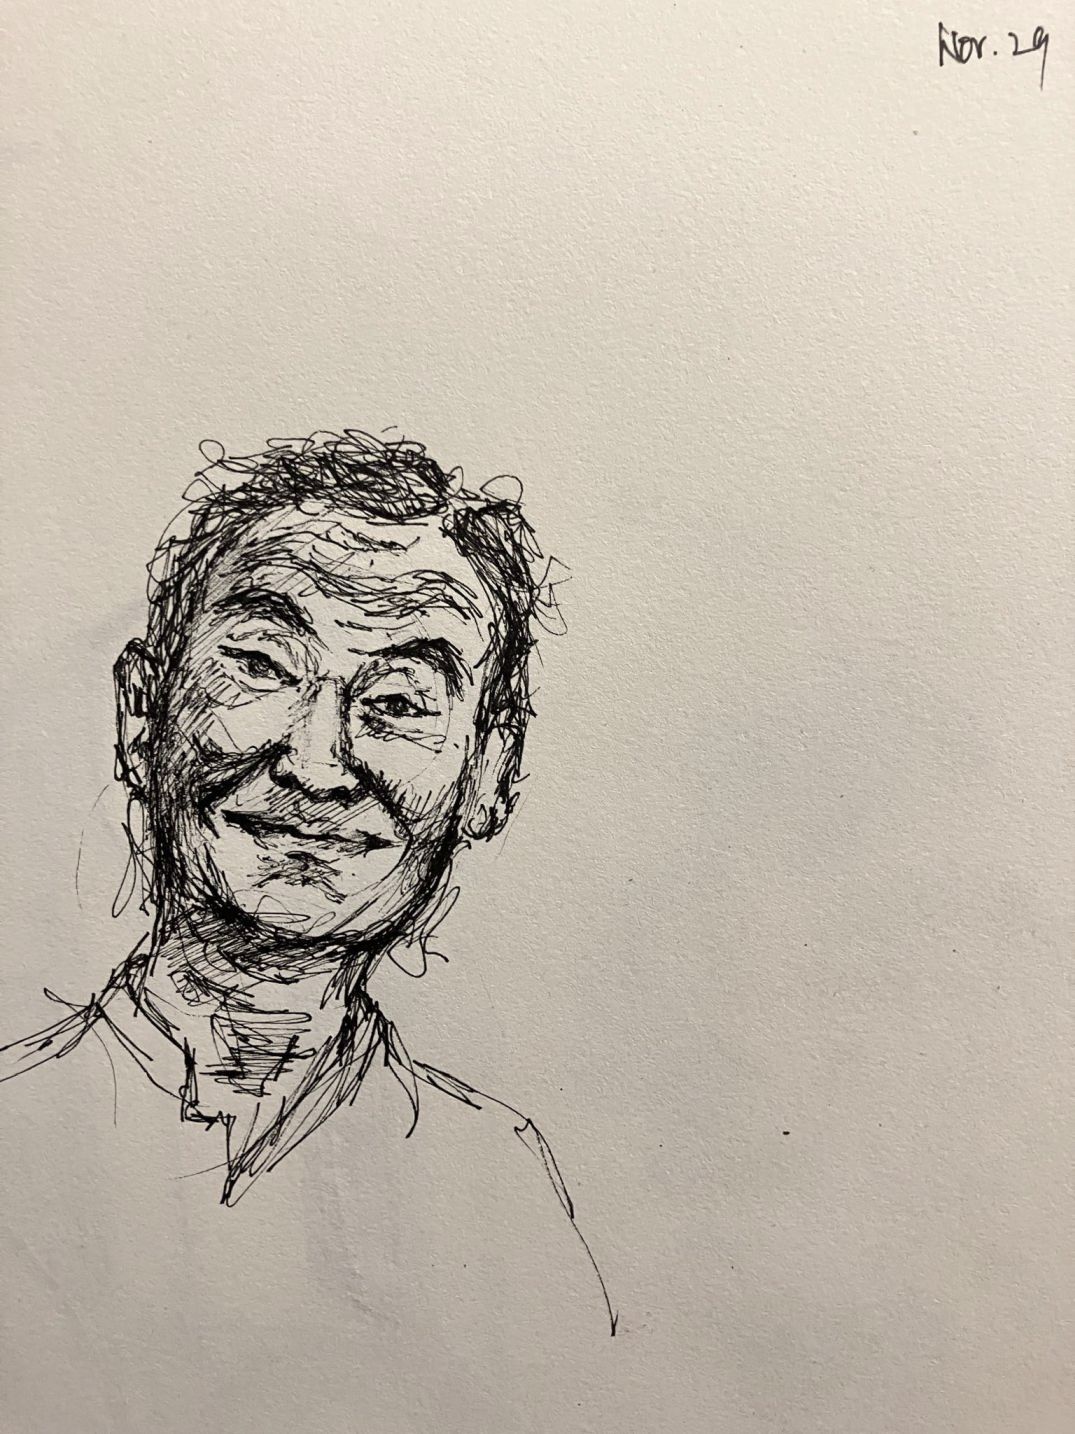 Nov. 29